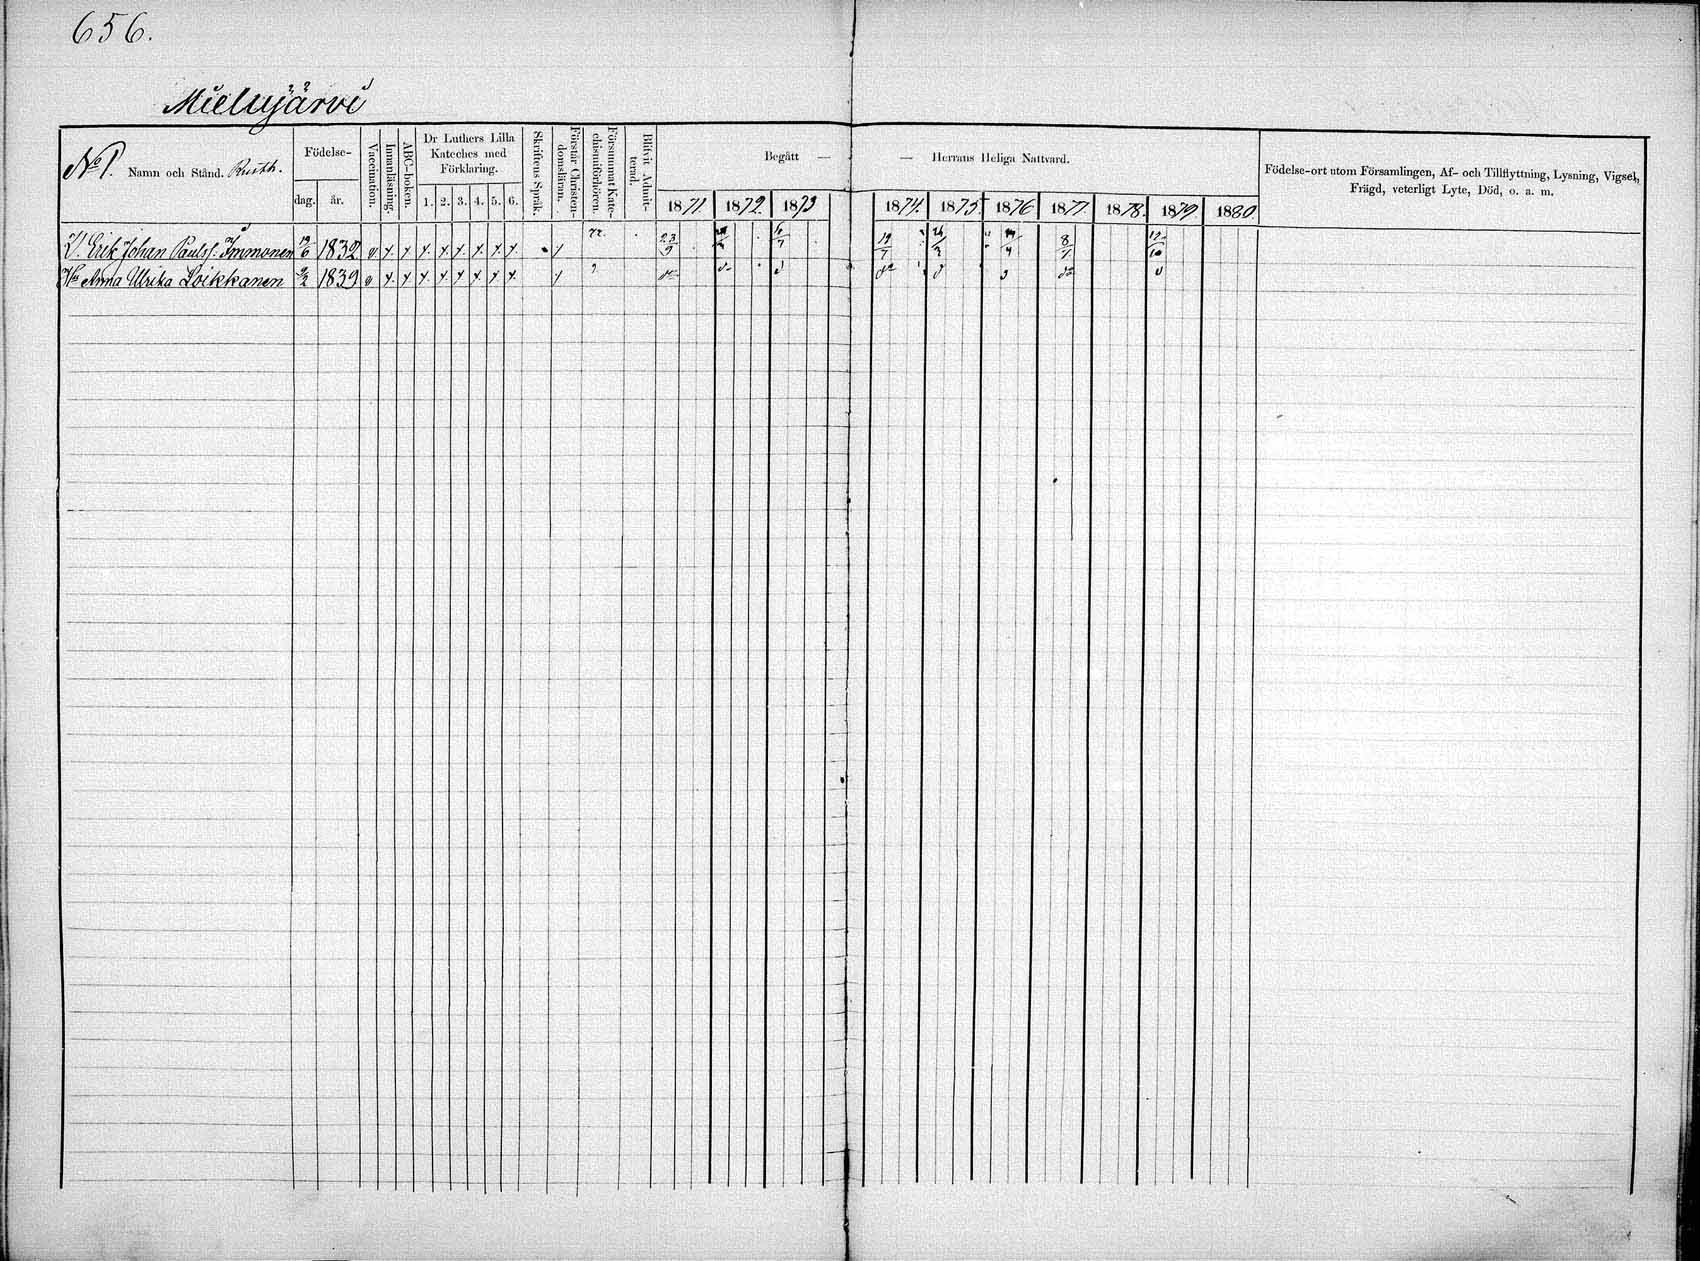 656.
Mielujärvi
No 1. Namn och Stånd. Ruth.
Födelse-
dag. år.
Vaccination.
Innanläsning.
ABC-boken.
Dr Luthers Lilla
Kateches med
Förklaring.
1. 2. 3. 4. 5. 6.
Skriftens Språk.
Förstår Christen-
domsläran.
Försummat Kate-
chismiförhören.
Blifvit Admit-
terad.
Begått — — Herrans Heliga Nattvard.
1871. 1872. 1873 1874. 1875. 1876 1877. 1878. 1879. 1880.
Födelse-ort utom Församlingen, Af- och Tillflyttning, Lysning, Vigsel,
Frägd, veterligt Lyte, Död, o. a. m.
Erik Johan Paulss. Immonen 19/6 1832 23/9 19/7 8/7
Hu Anna Ulrika Loikkanen 1839